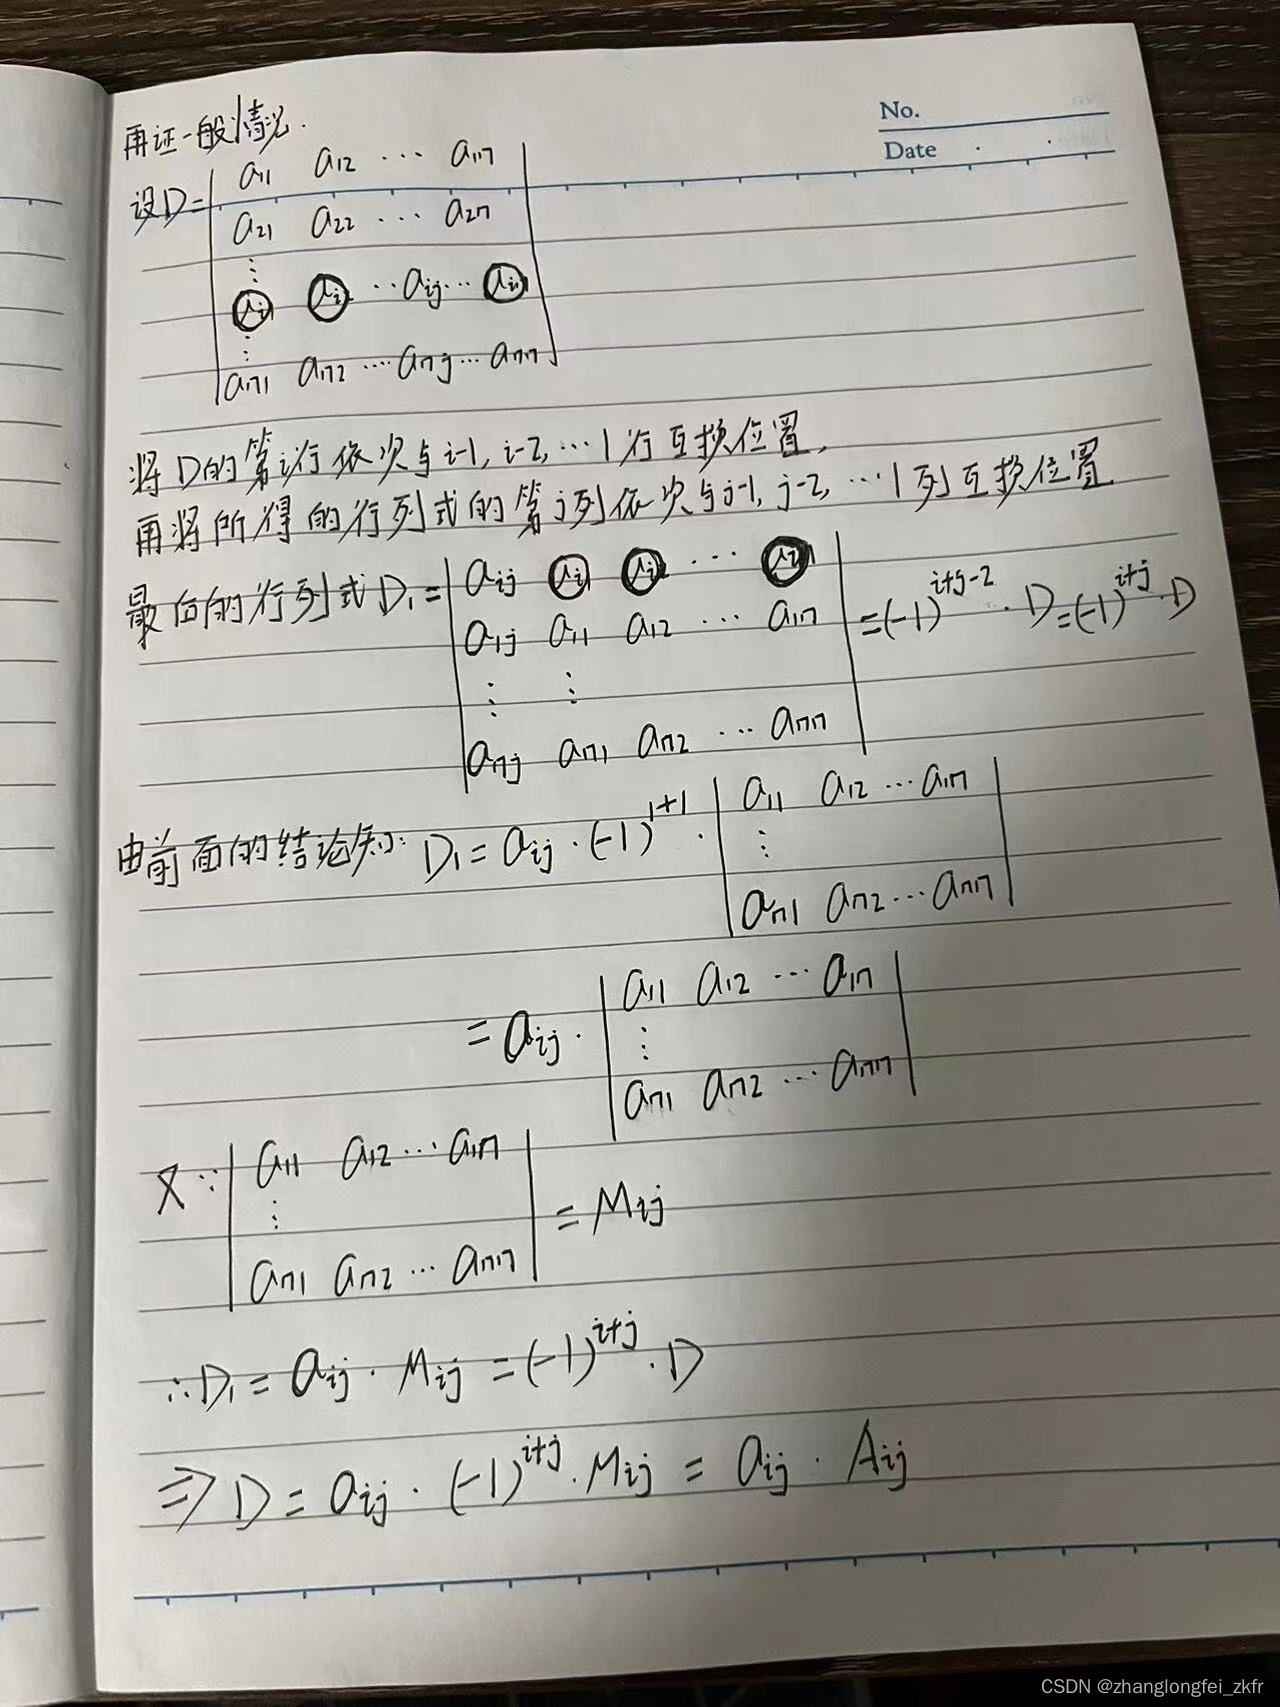 No.
Date
再证一般情况.
设D=
a11 a12 ··· a1n
a21 a22 ··· a2n
⋮
··aij···
⋮
an1 an2 ····anj···ann
将D的第i行依次与i-1, i-2, ···1行互换位置,
再将所得的行列式的第j列依次与j-1, j-2, ···1列互换位置
最后的行列式D1= aij ··· =(-1)^i+j-2 · D=(-1)^i+j · D
a1j a11 a12 ··· a1n
⋮ ⋮
anj an1 an2 ··· ann
由前面的结论知: D1= aij · (-1)^1+1 · a11 a12 ··· a1n
⋮
an1 an2 ··· ann
= aij · a11 a12 ··· a1n
⋮
an1 an2 ··· ann
又∵ a11 a12 ··· a1n = Mij
⋮
an1 an2 ··· ann
∴D1= aij · Mij =(-1)^i+j · D
⇒ D = aij · (-1)^i+j · Mij = aij · Aij
CSDN @zhanglongfei_zkfr